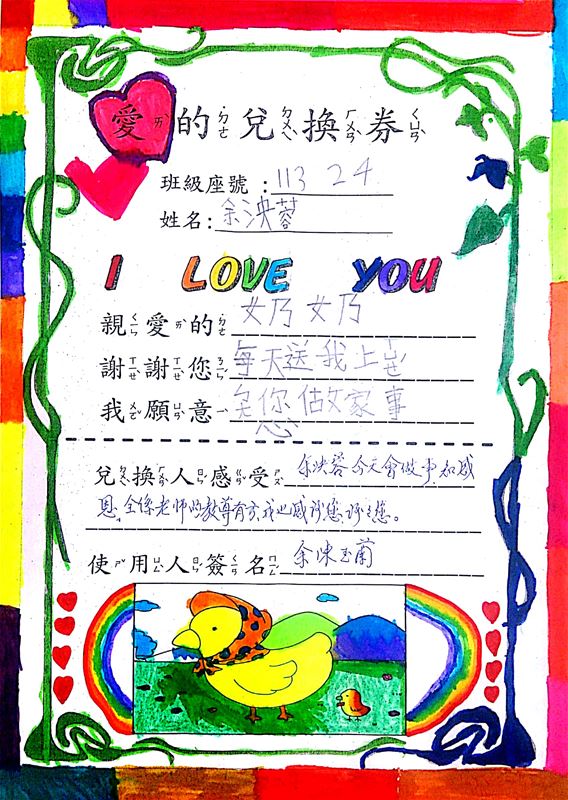 愛ㄞˋ的ㄉㄜ˙兌ㄉㄨㄟˋ換ㄏㄨㄢˋ券ㄑㄩㄢˋ
班級座號：113 24
姓名：余泱蓉
I LOVE YOU
親ㄑㄧㄣ愛ㄞˋ的ㄉㄜ˙奶奶
謝ㄒㄧㄝˋ謝ㄒㄧㄝˋ您ㄋㄧㄣˊ每天送我上ㄒㄩㄝˊ
我ㄨㄛˇ願ㄩㄢˋ意ㄧˋ為您做家事
兌ㄉㄨㄟˋ換ㄏㄨㄢˋ人ㄖㄣˊ感ㄍㄢˇ受ㄕㄡˋ余泱蓉今天會做事知感
恩，全係老師的教導有方，我也感謝您，謝謝您。
使ㄕˇ用ㄩㄥˋ人ㄖㄣˊ簽ㄑㄧㄢ名ㄇㄧㄥˊ余陳玉蘭